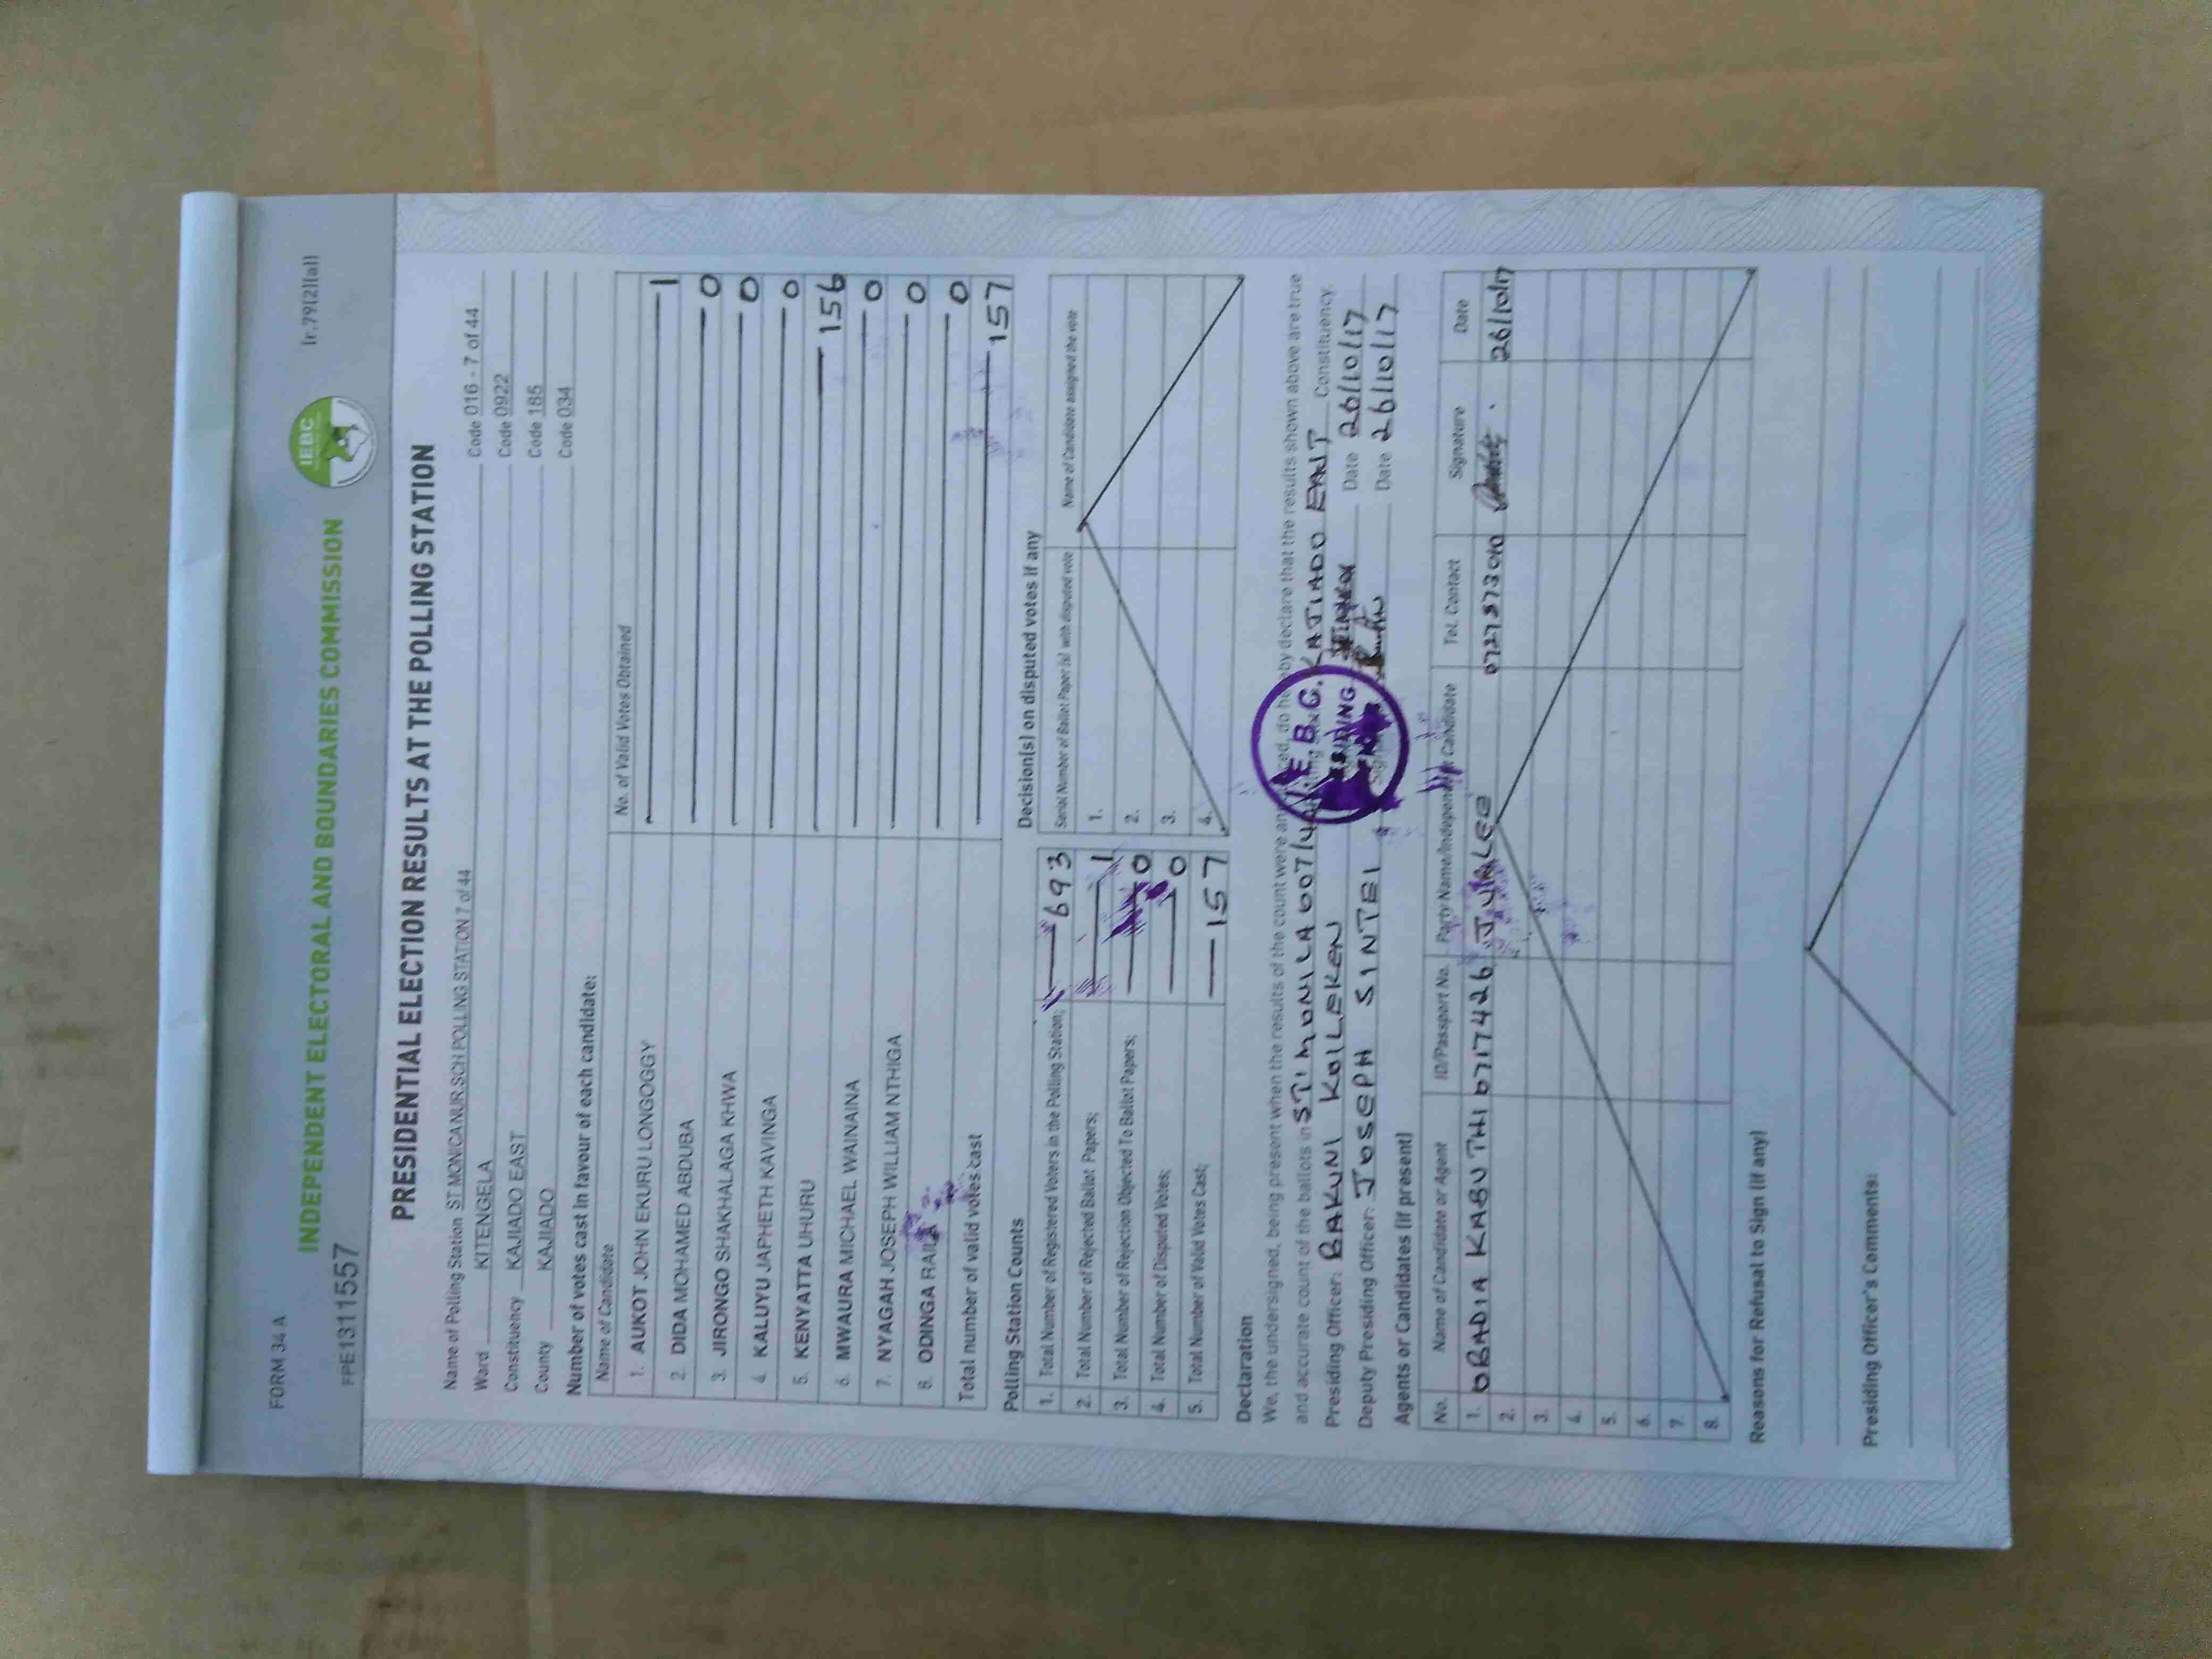 FORM 34 A
(r.79(2)(a))
INDEPENDENT ELECTORAL AND BOUNDARIES COMMISSION
IEBC
FPE1311557
PRESIDENTIAL ELECTION RESULTS AT THE POLLING STATION
Name of Polling Station ST MONICA NUR.SCH POLLING STATION 7 of 44 Code 016 - 7 of 44
Ward KITENGELA Code 0922
Constituency KAJIADO EAST Code 185
County KAJIADO Code 034
Number of votes cast in favour of each candidate:
Name of Candidate No. of Valid Votes Obtained
1. AUKOT JOHN EKURU LONGOGGY 1
2. DIDA MOHAMED ABDUBA 0
3. JIRONGO SHAKHALAGA KHWA 0
4. KALUYU JAPHETH KAVINGA 0
5. KENYATTA UHURU 156
6. MWAURA MICHAEL WAINAINA 0
7. NYAGAH JOSEPH WILLIAM NTHIGA 0
8. ODINGA RAILA 0
Total number of valid votes cast 157
Polling Station Counts
1. Total Number of Registered Voters in the Polling Station; 693
2. Total Number of Rejected Ballot Papers; 1
3. Total Number of Rejection Objected To Ballot Papers; 0
4. Total Number of Disputed Votes; 0
5. Total Number of Valid Votes Cast; 157
Decision(s) on disputed votes if any
Serial Number of Ballot Paper (s) with disputed vote Name of Candidate assigned the vote
1.
2.
3.
4.
Declaration
We, the undersigned, being present when the results of the count were announced, do hereby declare that the results shown above are true
and accurate count of the ballots in ST. MONICA 007/44 KAJIADO EAST Constituency.
Presiding Officer: BAKUNI KOLLEKEN Date 26/10/17
Deputy Presiding Officer: JOSEPH SINTEI Date 26/10/17
I.E.B.C.
Agents or Candidates (if present)
No. Name of Candidate or Agent ID/Passport No. Party Name/Independent Candidate Tel. Contact Signature Date
1. OBADIA KABUTHI 0717426 JUBILEE 0727573010 26/10/17
2.
3.
4.
5.
6.
7.
8.
Reasons for Refusal to Sign (if any)
Presiding Officer's Comments: